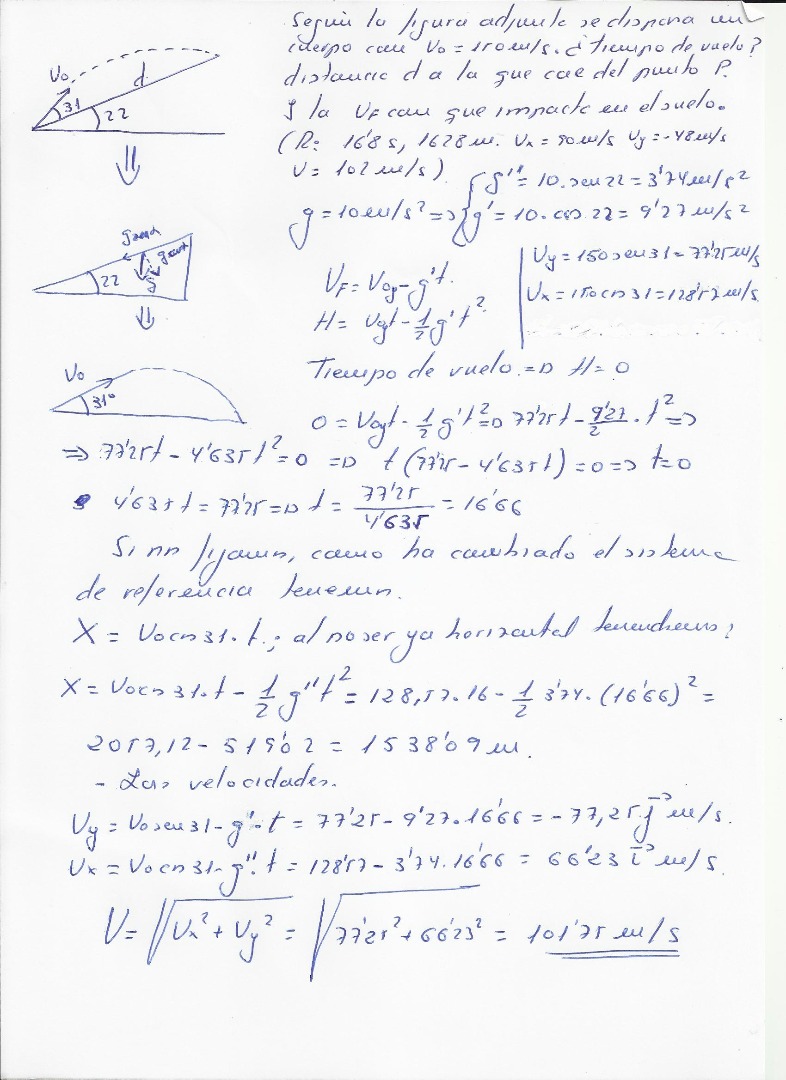 Según la figura adjunta se dispara un
cuerpo con V0 = 150 m/s. ¿Tiempo de vuelo?
distancia d a la que cae del punto P.
Y la VF con que impacta en el suelo.
(R: 16'8 s, 1628 m. Vx = 90 m/s Vy = -48 m/s
V = 102 m/s)
V0 d 31 22
g = 10 m/s² => { g'' = 10. sen 22 = 3'74 m/s²
g' = 10. cos 22 = 9'27 m/s²
22 g
VF = V0y - g't.
H = V0yt - 1/2 g't²
Vy = 150 sen 31 = 77'25 m/s
Vx = 150 cos 31 = 128'57 m/s
V0 31°
Tiempo de vuelo => H = 0
0 = V0yt - 1/2 g't² => 77'25t - 9'27/2 . t² =>
=> 77'25t - 4'635t² = 0 => t (77'25 - 4'635t) = 0 => t = 0
4'635t = 77'25 => t = 77'25/4'635 = 16'66
Si nos fijamos, como ha cambiado el sistema
de referencia tenemos.
X = V0 cos 31. t.; al no ser ya horizontal tendremos:
X = V0 cos 31. t - 1/2 g'' t² = 128,57. 16 - 1/2 3'74. (16'66)² =
2057,12 - 519'02 = 1538'09 m.
- Las velocidades.
Vy = V0 sen 31 - g'. t = 77'25 - 9'27. 16'66 = -77,25 j m/s.
Vx = V0 cos 31 - g''. t = 128'57 - 3'74. 16'66 = 66'23 i m/s.
V = √Vx² + Vy² = √77'25² + 66'23² = 101'75 m/s